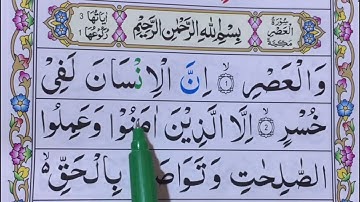 سُوْرَةُ الْعَصْرِ مَكِّيَّةٌ
بِسْمِ اللّٰهِ الرَّحْمٰنِ الرَّحِيْمِ
اٰيَاتُهَا 3
رُكُوْعُهَا 1
وَالْعَصْرِ ۝۱ اِنَّ الْاِنْسَانَ لَفِیْ
خُسْرٍ ۝۲ اِلَّا الَّذِيْنَ اٰمَنُوْا وَعَمِلُوا
الصّٰلِحٰتِ وَتَوَاصَ بِالْحَقِّ ۙ